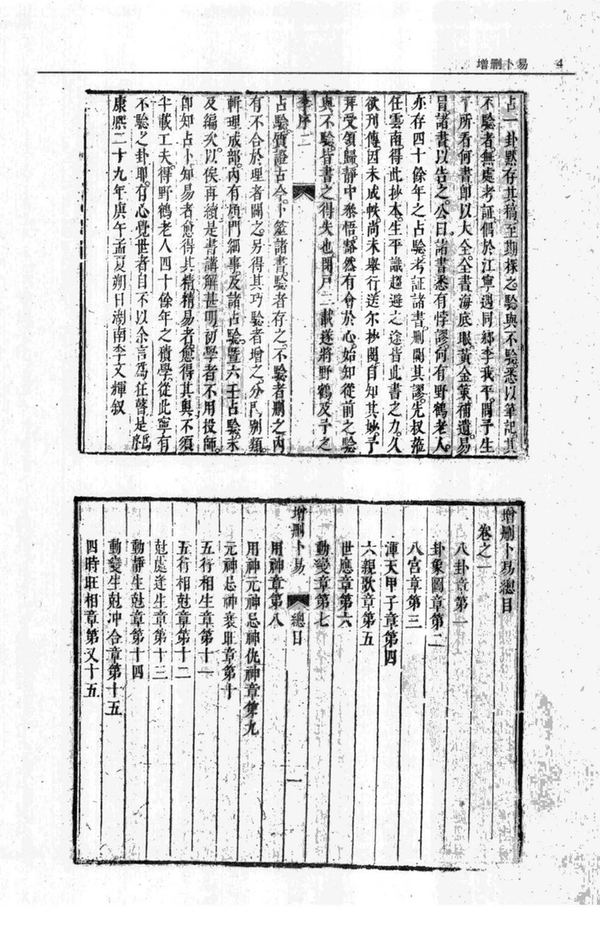 增刪卜易 4
占一卦默存其稿至期探之驗與不驗悉以筆記其
不驗者無處考証偶於江寧遇同鄉李我平問子生
所看何書卽以大全全書海底眼黃金策補遺易
冒諸書以告之公曰諸書悉有悖謬何有野鶴老人
亦存四十餘年之占驗考証諸書刪闢其謬先叔蒞
任雲南得此抄本生平識趨避之途皆此書之力久
欲刋傳因未成帙尚未舉行送尔抄閱自知其妙予
拜受領歸靜中叅悟豁然有會於心始知從前之驗
與不驗皆書之得失也閉戶二載遂將野鶴及子之
李序 二
占驗質證古今卜筮諸書驗者存之不驗者刪之內
有不合於理者闢之另得其巧驗者增之分門別類
輯理成部內有質門細事及諸占驗曁六壬占驗未
及編次以俟再續是書講解甚明初學者不用投師
卽知占卜知易者愈得其精精易者愈得其奧不須
半載工夫得野鶴老人四十餘年之積學從此寧有
不驗之卦耶有心覺世者自不以余言爲狂瞽是爲序
康熙二十九年庚午孟夏朔日湖南李文輝叙
增刪卜易總目
卷之一
八卦章第一
卦象圖章第二
八宮章第三
渾天甲子章第四
六親歌章第五
世應章第六
動變章第七
增刪卜易 總目 一
用神章第八
用神元神忌神仇神章第九
元神忌神衰旺章第十
五行相生章第十一
五行相尅章第十二
尅處逢生章第十三
動靜生尅章第十四
動變生尅冲合章第十五
四時旺相章第又十五